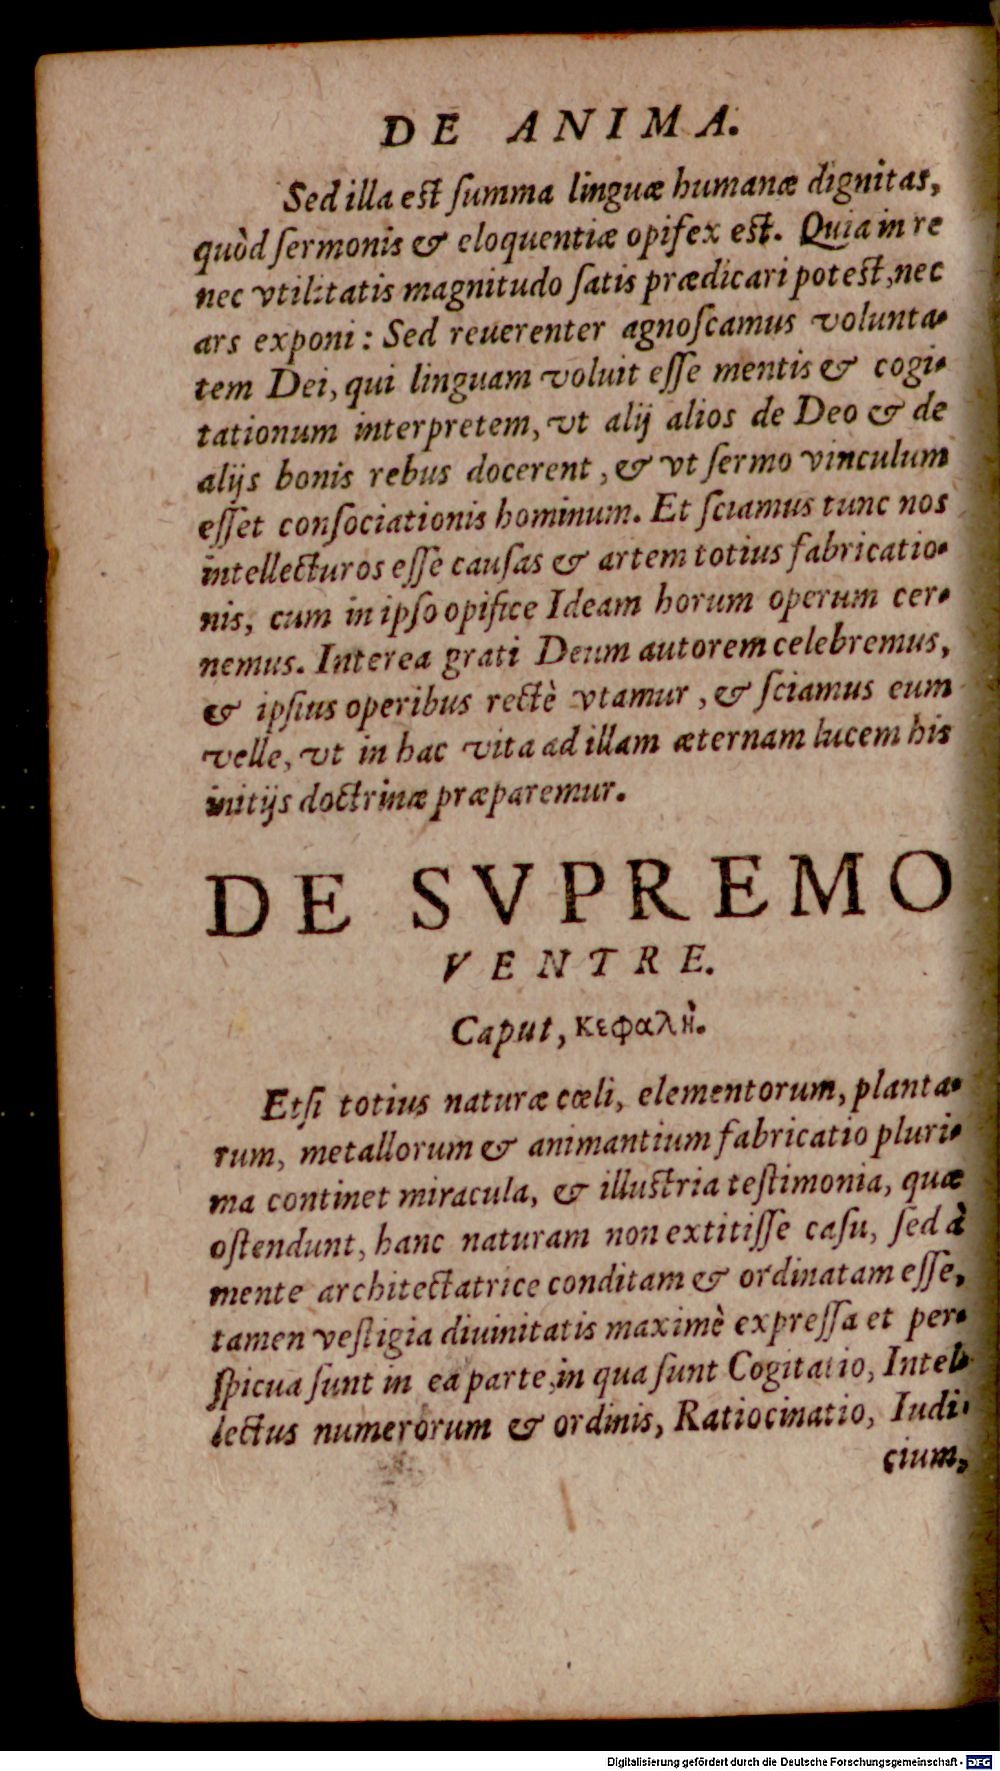 DE ANIMA.
Sed illa est ſumma linguæ humanæ dignitas,
quòd ſermonis & eloquentiæ opifex est. Quia in re
nec vtilitatis magnitudo ſatis prædicari potest, nec
ars exponi: Sed reuerenter agnoſcamus volunta-
tem Dei, qui linguam voluit eſſe mentis & cogi-
tationum interpretem, vt alij alios de Deo & de
alijs bonis rebus docerent, & vt ſermo vinculum
eſſet conſociationis hominum. Et ſciamus tunc nos
intellecturos eſſe cauſas & artem totius fabricatio-
nis, cum in ipſo opifice Ideam horum operum cer-
nemus. Interea grati Deum autorem celebremus,
& ipſius operibus rectè vtamur, & ſciamus eum
velle, vt in hac vita ad illam æternam lucem his
initijs doctrinæ præparemur.
DE SVPREMO
VENTRE.
Caput, κεφαλὴ.
Etſi totius naturæ cœli, elementorum, planta-
rum, metallorum & animantium fabricatio pluri-
ma continet miracula, & illustria teſtimonia, quæ
oſtendunt, hanc naturam non extitiſſe caſu, ſed à
mente architectatrice conditam & ordinatam eſſe,
tamen veſtigia diuinitatis maximè expreſſa et per-
ſpicua ſunt in ea parte, in qua ſunt Cogitatio, Intel-
lectus numerorum & ordinis, Ratiocinatio, Iudi-
cium,
Digitalisierung gefördert durch die Deutsche Forschungsgemeinschaft - DFG